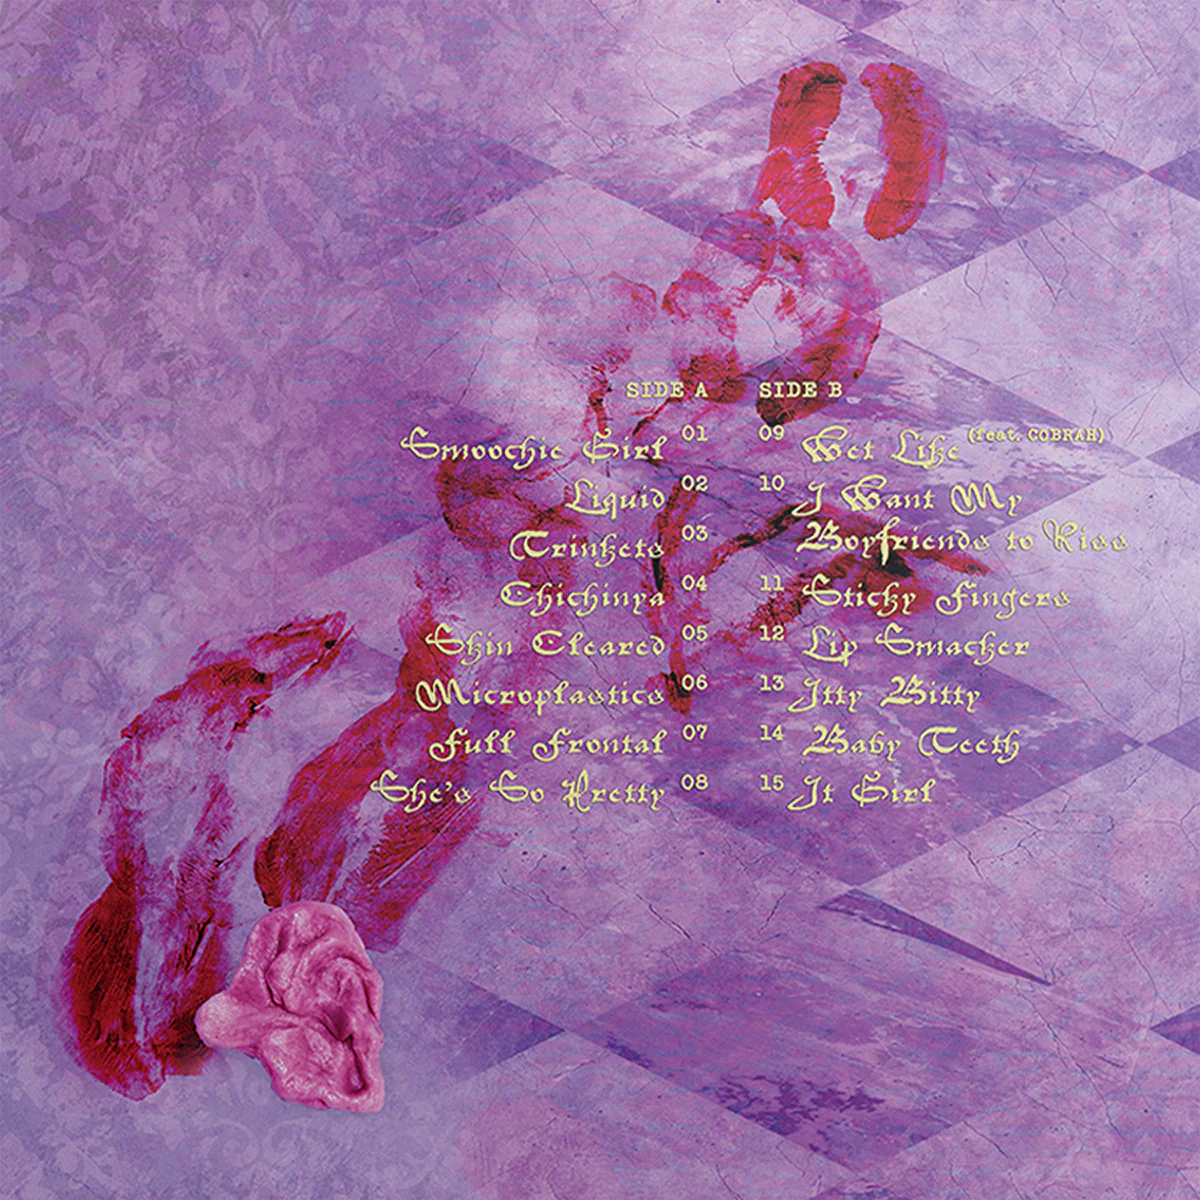 SIDE A
Smoochie Girl 01
Liquid 02
Trinkets 03
Chichinya 04
Skin Cleared 05
Microplastics 06
Full Frontal 07
She's So Pretty 08
SIDE B
09 Wet Like (feat. COBRAH)
10 I Want My
Boyfriends to Kiss
11 Sticky Fingers
12 Lip Smacker
13 Itty Bitty
14 Baby Teeth
15 It Girl